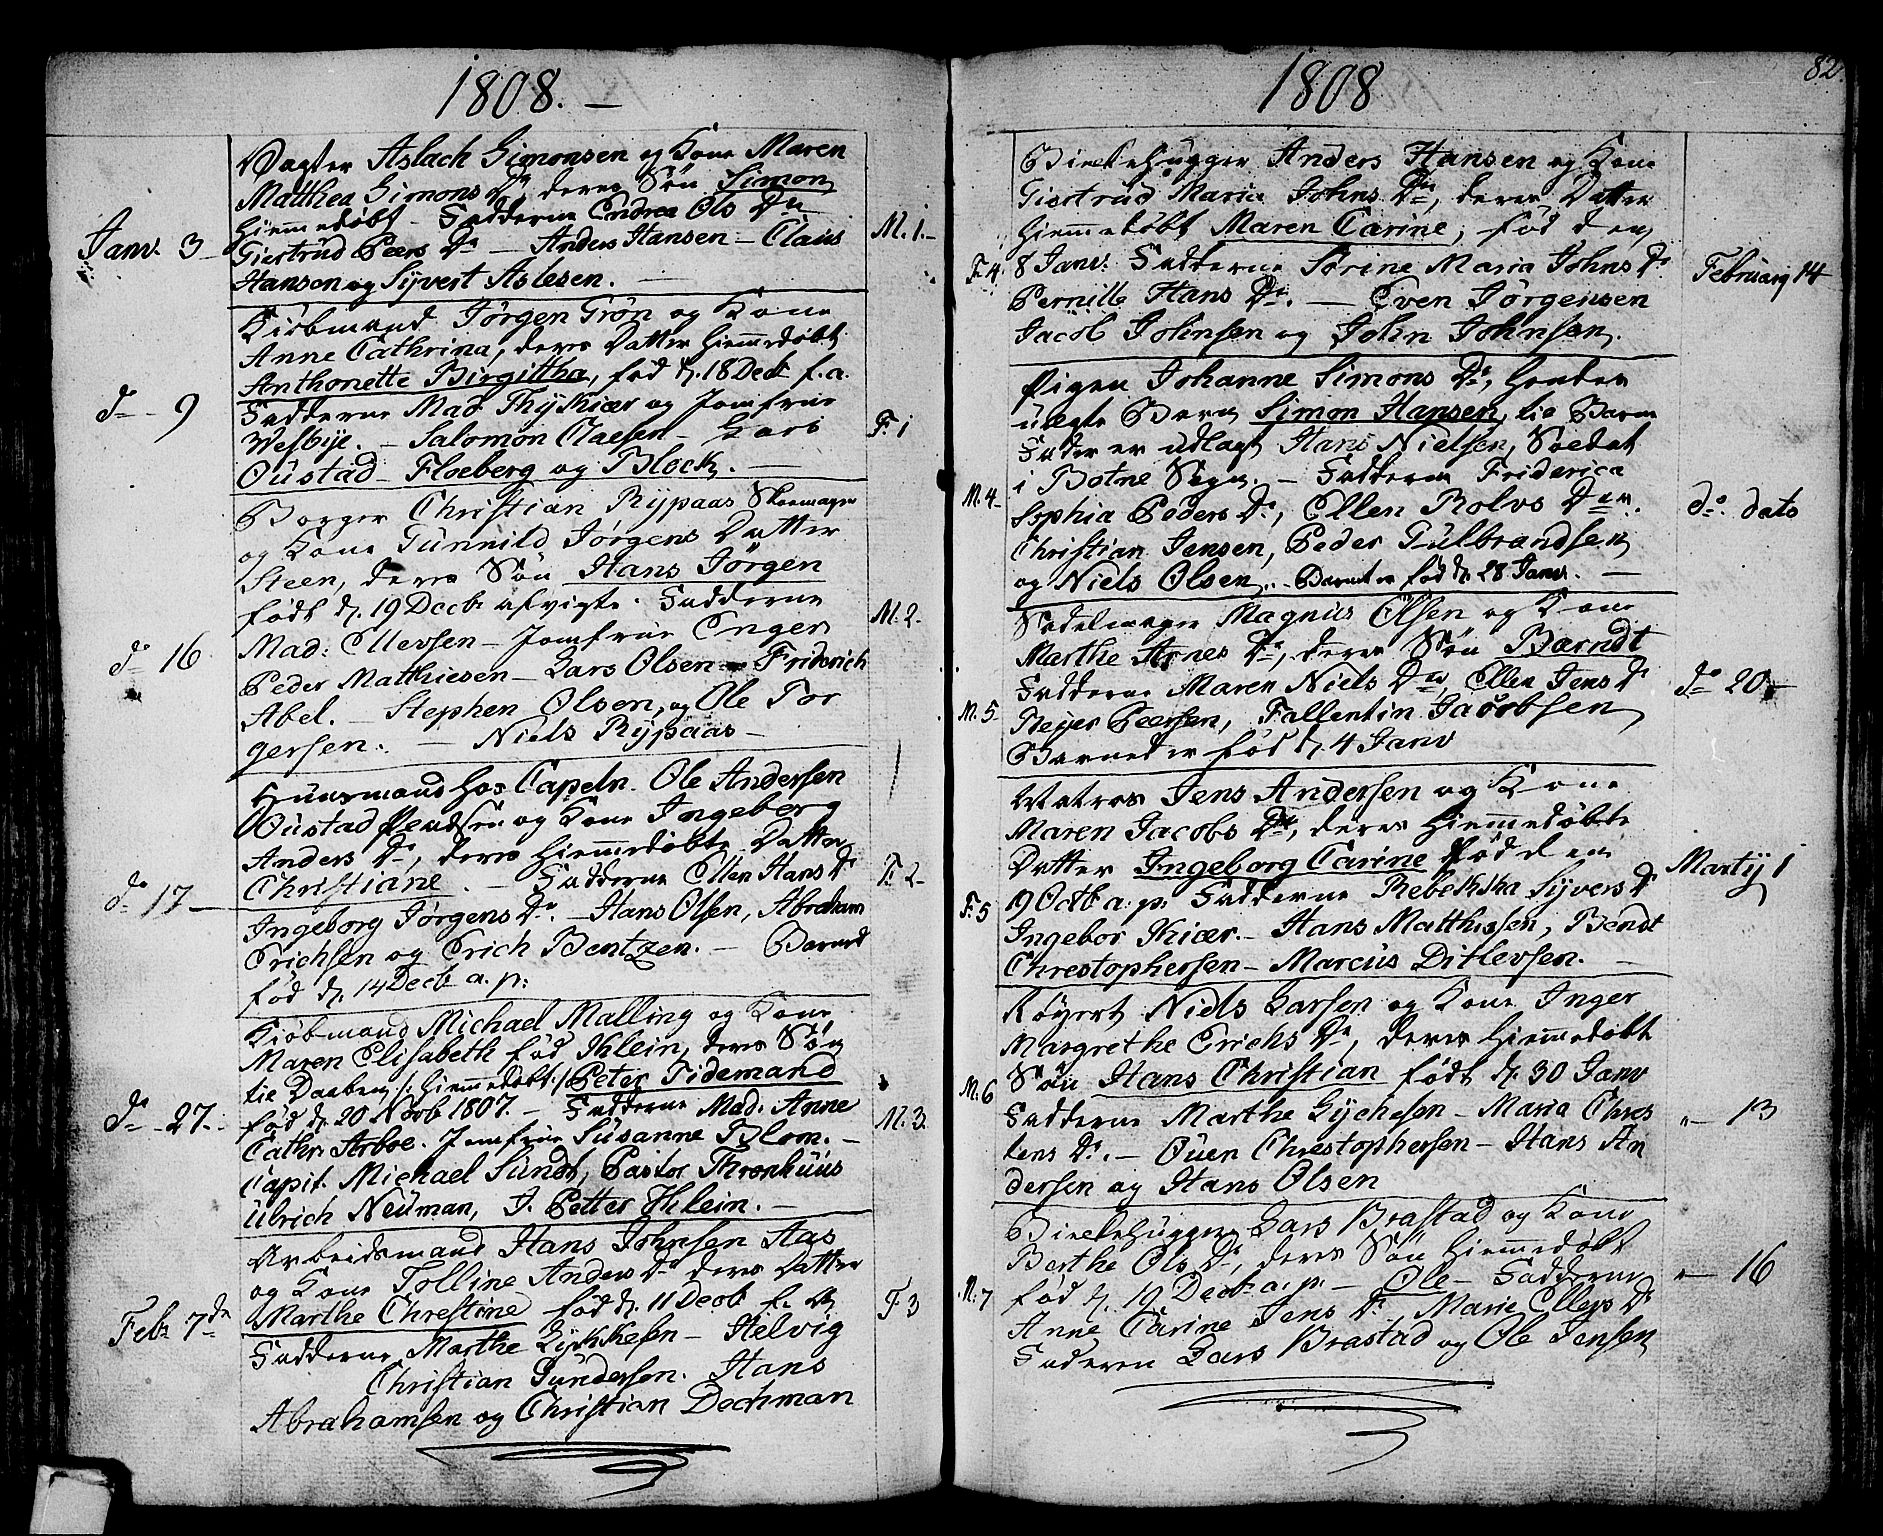 1808. —
Vagter Aslach Simonsen og Kone Maren
Matthea Simons Dr, deres Søn Simon
Hiemmedøbt - Fadderne Endrea Ols Dr
Janv. 3 Giertrud Peers Dr — Anders Hansen — Claus M. 1. -
Hansen og Syvert Aslesen. —
Kiøbmand Jörgen Grön og Kone
Anne Cathrina, deres Datter Hiemmedøbt
Anthonette Birgittha, fød d. 18 Decb f. a.
do - 9 Fadderne Mad. Thykiær og Jomfrue F. 1
Wesbye. — Salomon Claesen — Lars
Oustad — Floeberg og Block. —
Borger Christian Rypaas Skoemager
og Kone Gunnild Jörgens Datter
Steen, deres Søn Hans Jörgen
født d. 19 Decb afvigte. Fadderne M. 2-
do 16 Mad: Ellevsen — Jomfrue Enger
Peder Mathiesen — Lars Olsen — Friderich
Abel. — Stephen Olsen, og Ole Tor
gersen. — Niels Rypaas —
Huusmand hos Capeln. Ole Andersen
Oustad og Kone Ingeborg
Anders Dr, deres Hiemmedøbte Datter
do 17 — Christiane. — Fadderne Ellen Hans Dr F. 2-
Ingeborg Jörgens Dr. — Hans Olsen, Abraham
Erichsen og Erich Bentzen. — Barnet
fød d. 14 Decb a. p:
Kiøbmand Michael Malling og Kone
Maren Elisabeth fød Ihlein, deres Søn
til Daaben /: Hiemmedøbt :/ Peter Tidemand
do - 27. fød d. 20 Novb 1807. — Fadderne Mad. Anne M. 3.
Cathr. Arboe. Jomfrue Susanne Blom. —
Capit. Michael Sundt, Pastor Thronhuus
Ulrich Neuman, J. Petter Ihlein. —
Arbeidsmand Hans Johnsen Aas
og Kone Tolline Anders Dr deres Datter
Febr 7de Marthe Chrestine fød d. 11 Decb f. A. F. 3
Fadderne Marthe Lykkesen — Helvig
Christian Gundersen. Hans
Abrahamsen og Christian Dechman
1808 82
Birkehugger Anders Hansen og Kone
Giertrud Maria Johns Dr, deres Datter
Hiemmedøbt Maren Carine, fød den
F. 4 8 Janv: Fadderne Sörine Maria Johns Dr Februarq 14
Pernille Hans Dr. — Even Jörgensen
Jacob Johnsen og John Johnsen.
Pigen Johanne Simons Dr, hendes
uægte Barn Simon Hansen, til Barne
Fader er udlagt Hans Nielsen, Soldat
i Botne Sogn. — Fadderne Friderica
M. 4- Sophia Peders Dr, Ellen Rolvs Dr. do. dato
Christian Jensen, Peder Gulbrandsen
og Niels Olsen. Barnet er fød d. 28 Janv. —
Sadelmager Magnus Olsen og Kone
Marthe Arnes Dr, deres Søn Bærndt
Fadderne Maren Niels Dr Ellen Jens Dr do 20 —
M. 5- Reyer Peersen, Fallentin Jacobsen
Barnet er fød d. 4 Janv
Matros Jens Andersen og Kone
Maren Jacobs Dr, deres Hiemmedøbte
Datter Ingeborg Carine fød den Martij 1
F. 5 19 Octb a. p. Fadderne Rebekka Syvers Dr
Ingebor Kiær. — Hans Matthissen, Bendt
Chrestophersen — Marcus Ditlevsen. —
Røyert Niels Larsen og Kone Inger
Margrethe Erichs Dr, deres Hiemmedøbt
M. 6 Søn Hans Christian født d. 30 Janv
Fadderne Marthe Lychesen — Maria Chres " — 13
tens Dr. — Ouen Chrestophersen — Hans An
dersen og Hans Olsen
Birkehugger Lars Brastad og Kone
Berthe Ols Dr, deres Søn Hiemmedøbt
M. 7 fød d. 19 Decb a. p. — Ole — Fadderne " — 16
Anne Carine Jens Dr, Marie Ellevs Dr
Faderen Lars Brastad og Ole Jensen